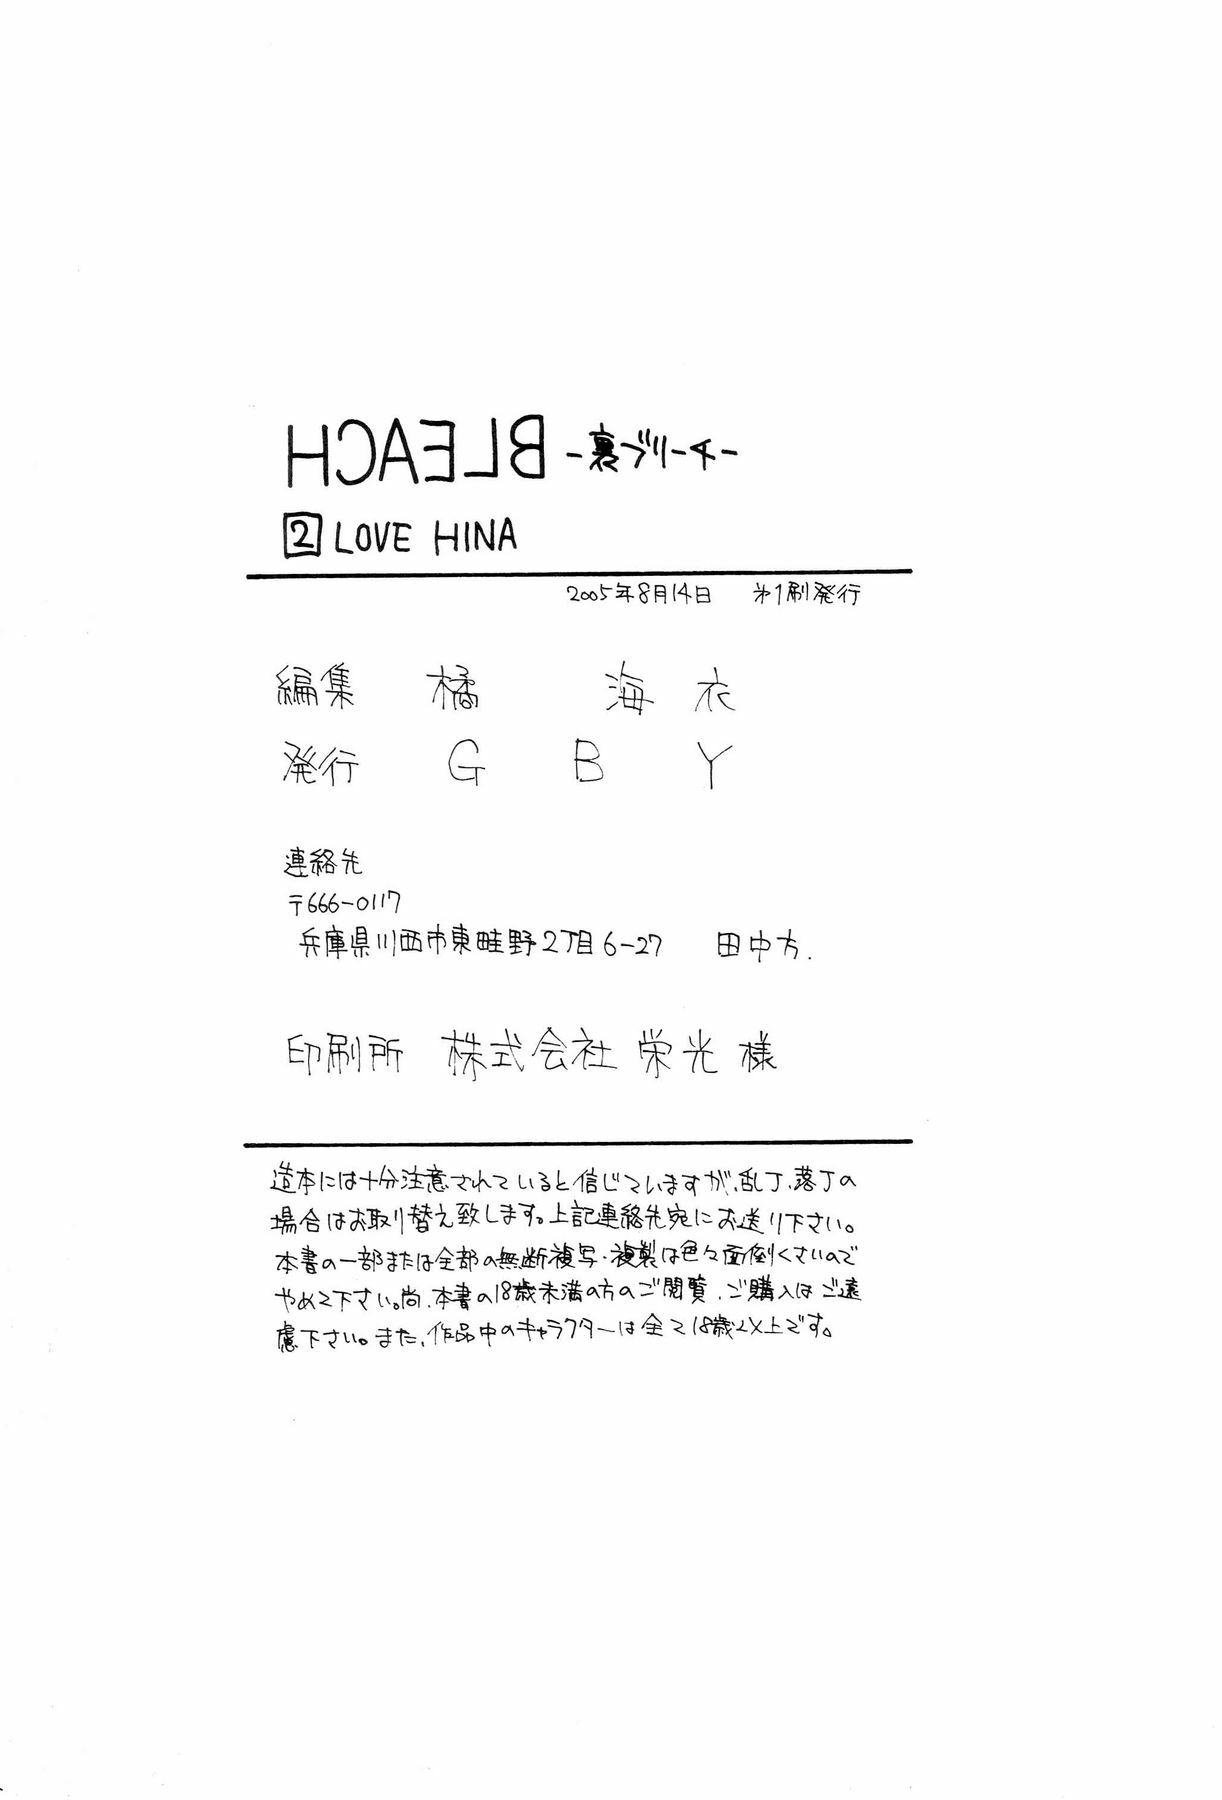 BLEACH -裏ブリーチ-
2 LOVE HINA
2005年8月14日 第1刷発行
編集 橘 海衣
発行 GBY
連絡先
〒666-0117
兵庫県川西市東畦野2丁目6-27 田中方.
印刷所 株式会社 栄光 様
造本には十分注意されていると信じていますが、乱丁、落丁の
場合はお取り替え致します。上記連絡先宛にお送り下さい。
本書の一部または全部の無断複写・複製は色々面倒くさいので
やめて下さい。尚、本書の18歳未満の方のご閲覧、ご購入はご遠
慮下さい。また、作品中のキャラクターは全て18歳以上です。